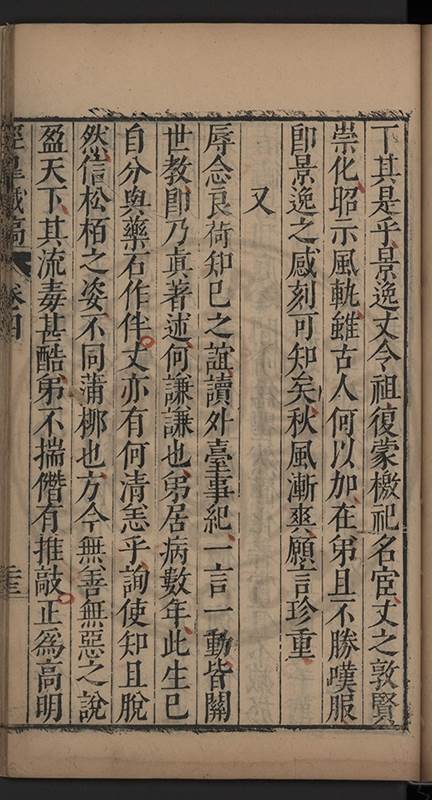 下其是乎景逸丈令祖復蒙檄祀名宦丈之敦賢
崇化昭示風軌雖古人何以加在弟且不勝嘆服
即景逸之感刻可知矣秋風漸爽願言珍重
又
辱念良荷知已之誼讀外臺事紀一言一動皆關
世教即乃真著述何謙謙也弟居病數年此生已
自分與藥石作伴丈亦有何清恙乎詢使知且脫
然信松栢之姿不同蒲柳也方今無善無惡之說
盈天下其流毒甚酷弟不揣僭有推敲正為高明
涇皐藏稿 卷四